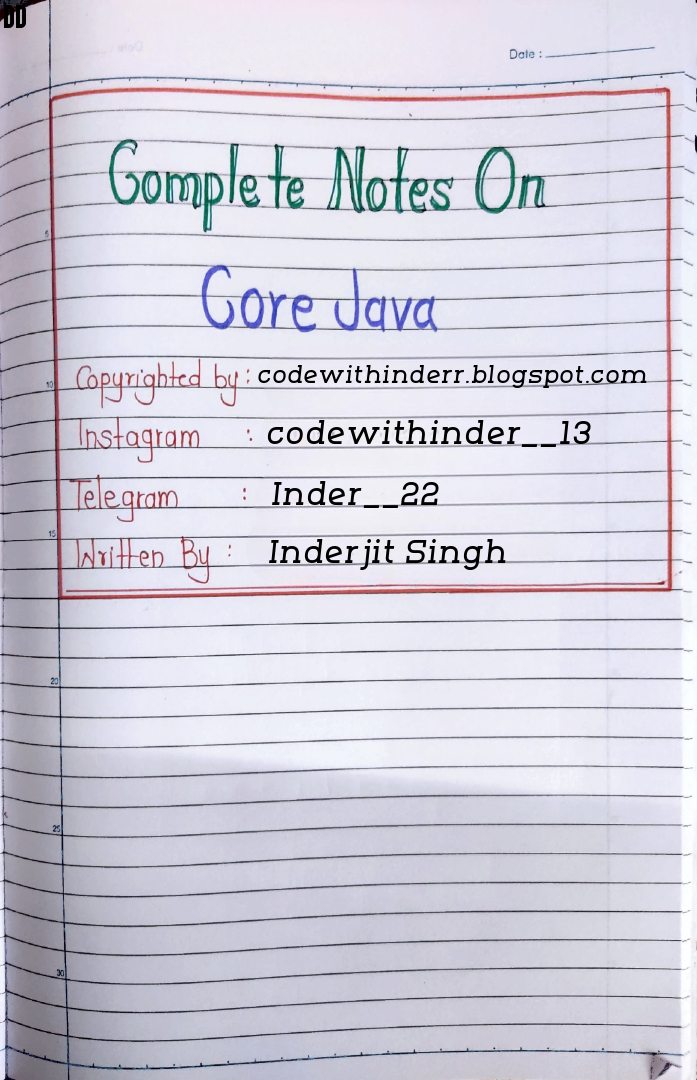 DD
Date :
Complete Notes On
Core Java
Copyrighted by : codewithinderr.blogspot.com
Instagram : codewithinder__13
Telegram : Inder__22
Written By : Inderjit Singh
5
10
15
20
25
30